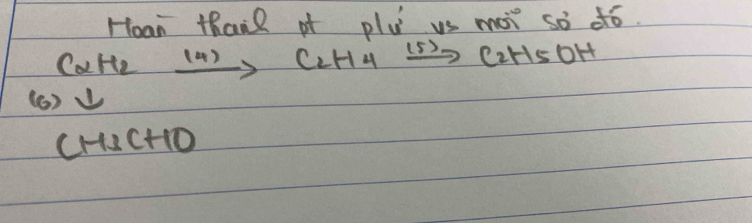 Hoàn thành pt phứ vs mỗi sơ đồ.
C2H2 (4)→ C2H4 (5)→ C2H5OH
(6) ↓
CH3CHO